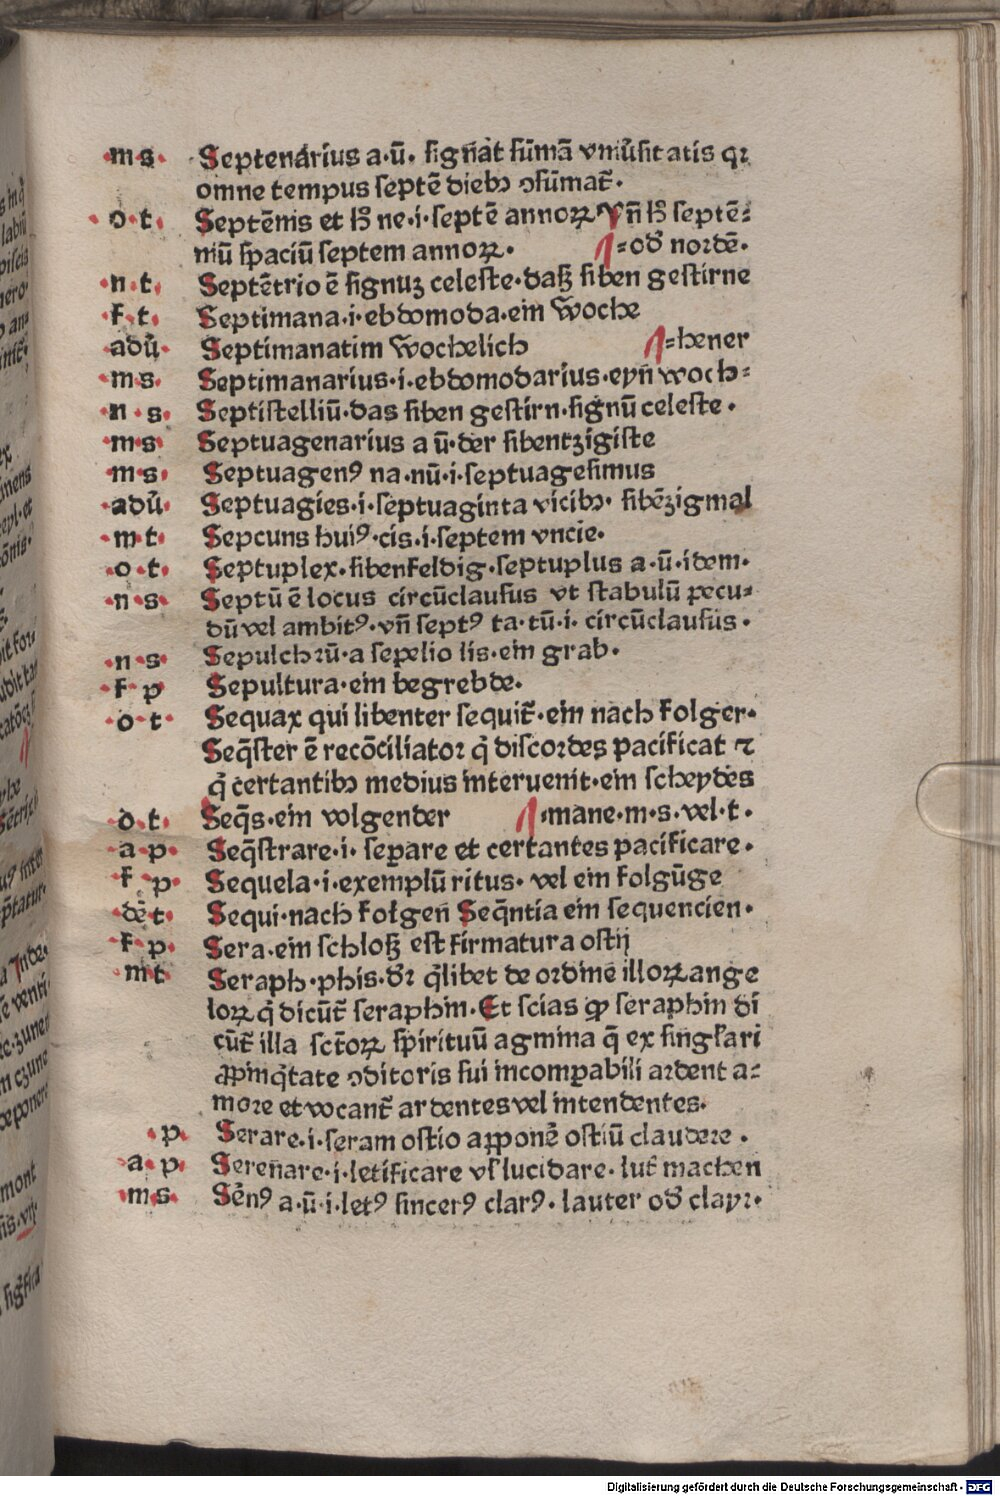 ·m·s· Septenarius a·ū· signat sūmā vniūsitatis qꝛ
omne tempus septē diebꝫ ꝯsūmat̄·
·o·t· Septēnis et hꝰ ne·i·septē annoꝝ Vn̄ hꝰ septē⸗
niū spaciū septem annoꝝ· ¶⸗od̕ nordē·
·n·t· Septētrio ē signuꝫ celeste·daß siben gestirne
·f·t· Septimana·i·ebdomoda·ein woche
·adū· Septimanatim wochelich ¶⸗hener
·m·s· Septimanarius·i·ebdomodarius·eyn̄ woch⸗
·n·s· Septistelliū·das siben gestirn·signū celeste·
·m·s· Septuagenarius a ū·der sibentzigiste
·m·s· Septuagenꝰ na·nū·i·septuagesimus
·adū· Septuagies·i·septuaginta vicibꝫ· sibēzigmal
·m·t· Sepcuns huiꝰ·cis·i·septem vncie·
·o·t· Septuplex·sibenfeldig·septuplus a·ū·idem·
·n·s· Septū ē locus circūclausus vt stabulū pecu⸗
dū vel ambitꝰ·vn̄ septꝰ ta·tū·i· circūclausus·
·n·s· Sepulchꝛū·a sepelio lis·ein grab·
·f·p Sepultura·ein begrebde·
·o·t· Sequax qui libenter sequit̄·ein nach folger·
Seq̄ster ē recōciliatoꝛ q̇ discordes pacificat ⁊
q̇ certantibꝫ medius interuenit·ein scheydes
·o·t· Seq̄s·ein volgender ¶⸗mane·m·s·vel·t·
·a·p· Seq̄strare·i· separe et certantes pacificare·
·f·p· Sequela·i·exemplū ritus· vel ein folgūge
·dē t· Sequi·nach folgen Seq̄ntia ein sequencien·
·f·p· Sera·ein schloß est firmatura ostij
·m t· Seraph·phis·dꝛ̄ q̇libet de ordine illoꝝ ange
loꝝ q̇ dicūt̄ seraphin·Et scias ꝙ seraphin di
cūt̄ illa sctōꝝ spirituū agmina q̄ ex singl̓ari
ꝓpinq̇tate ꝯditoris sui incompabili aꝛdent a⸗
moꝛe et vocant̄ ardentes vel intendentes·
·p· Serare·i·seram ostio apponē ostiū claudeꝛe·
·a·p· Serenare·i·letificare vl̓ lucidare· lut̄ machen
·m·s· Sēnꝰ a·ū·i·letꝰ sincerꝰ clarꝰ· lauter od̕ clayꝛ·
Digitalisierung gefördert durch die Deutsche Forschungsgemeinschaft - DFG